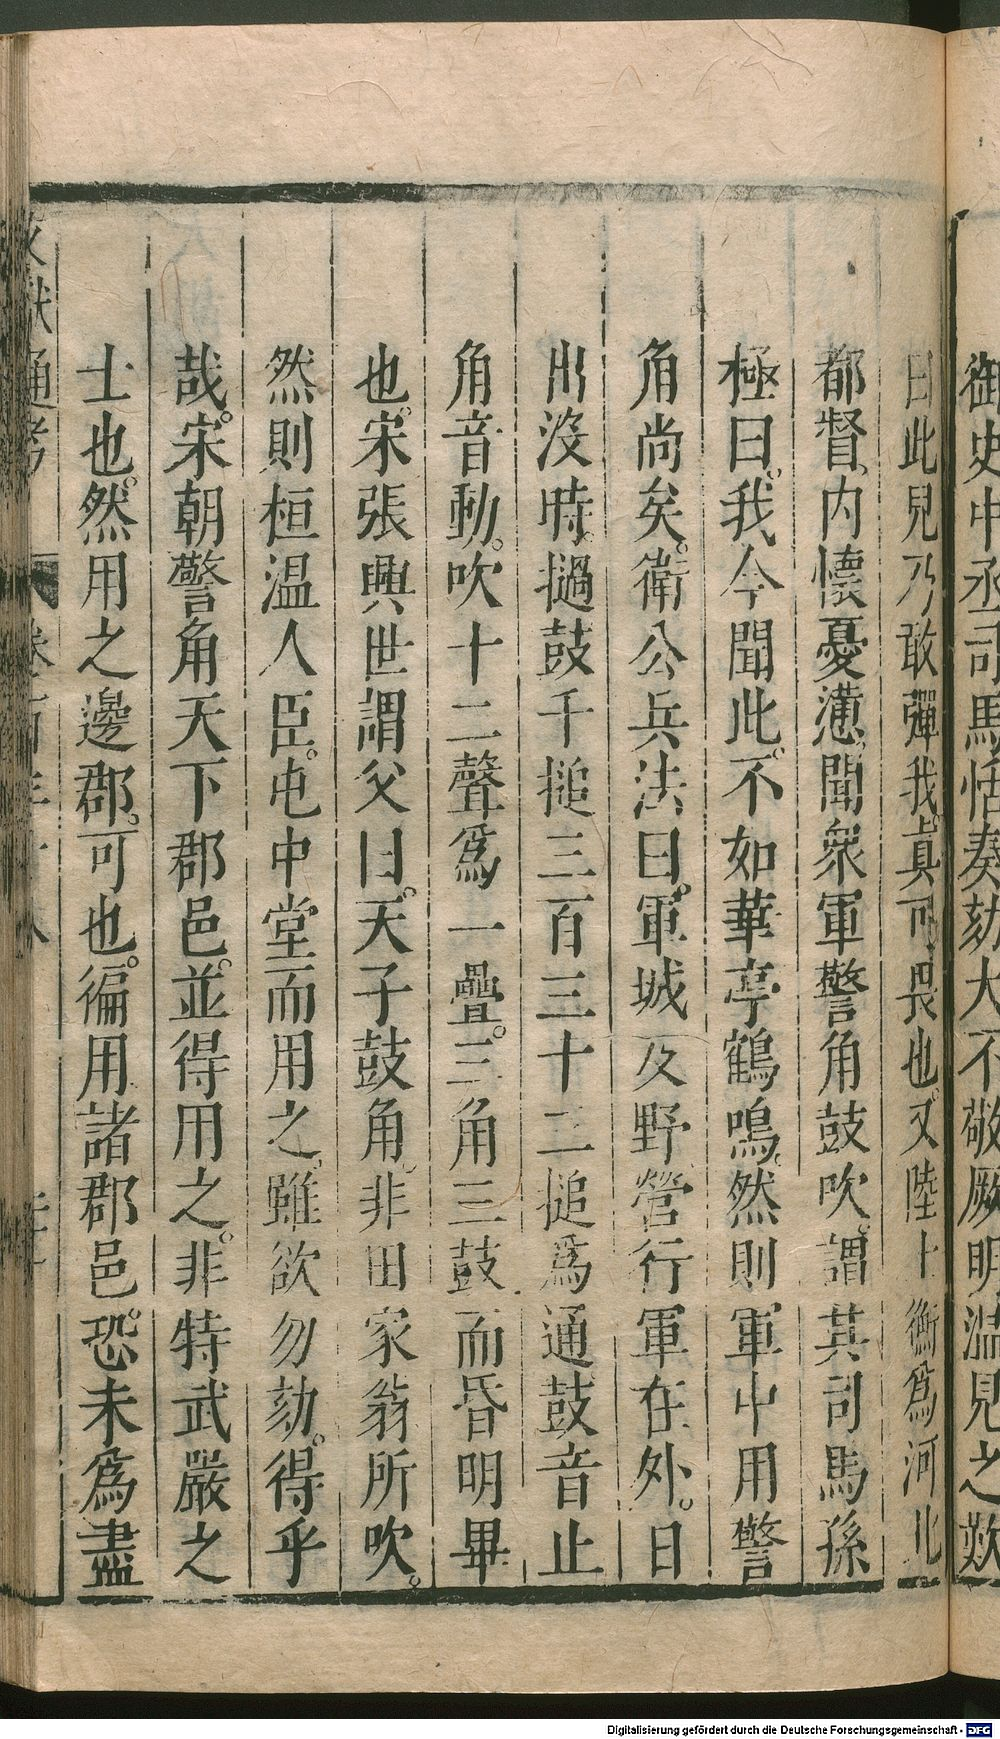 御史中丞司馬恬奏劾大不敬厥明溫見之歎
曰此兒乃敢彈我真可畏也又陸士衡爲河北
都督内懷憂懣聞衆軍警角鼓吹謂其司馬孫
極曰我今聞此不如華亭鶴鳴然則軍中用警
角尚矣衛公兵法曰軍城及野營行軍在外日
出没時撾鼓千搥三百三十三搥爲通鼓音止
角音動吹十二聲爲一疊三角三鼓而昏明畢
也宋張興世謂父曰天子鼓角非田家翁所吹
然則桓温人臣屯中堂而用之雖欲勿劾得乎
哉宋朝警角天下郡邑並得用之非特武嚴之
士也然用之邊郡可也徧用諸郡邑恐未爲盡
文獻通考
Digitalisierung gefördert durch die Deutsche Forschungsgemeinschaft - DFG